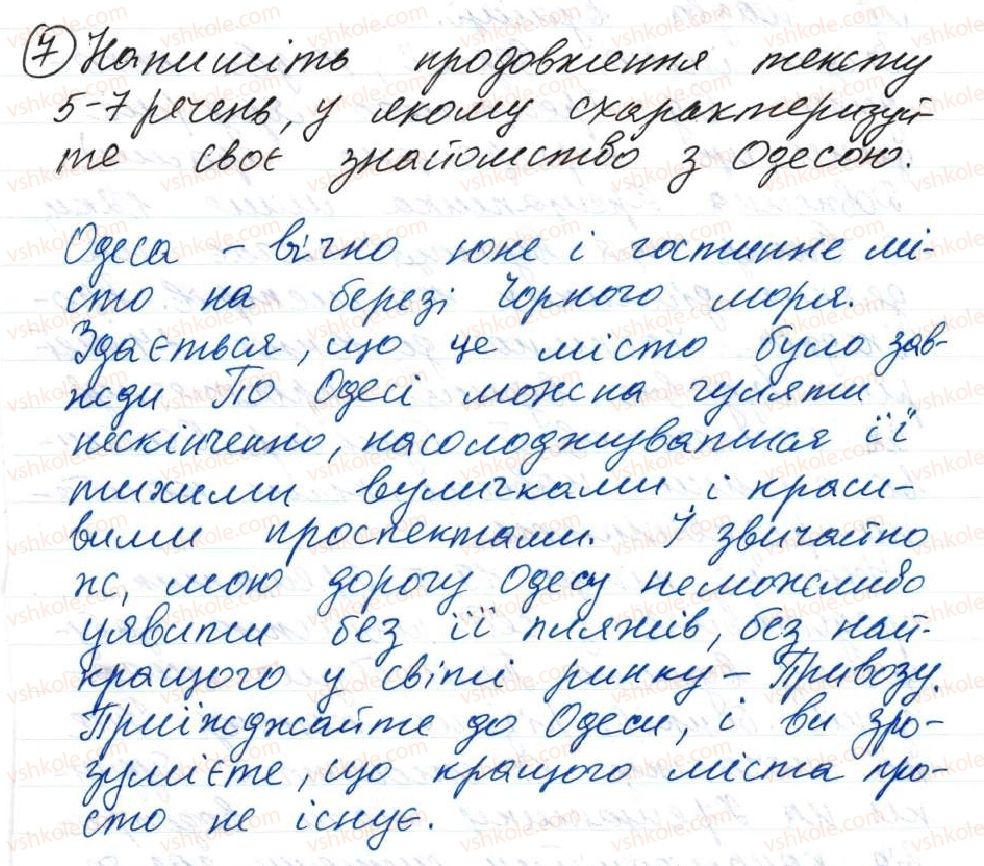 7 Напишіть продовження тексту
5-7 речень, у якому схарактеризуй
те своє знайомство з Одесою.
Одеса – вічно юне і гостинне мі-
сто на березі Чорного моря.
Здається, що це місто було зав-
жди По Одесі можна гуляти
нескінченно, насолоджуватися її
тихими вуличками і краси-
вими проспектами. І звичайно
же, мою дорогу Одесу неможливо
уявити без її пляжів, без най-
кращого у світі ринку – Привозу.
Приїжджайте до Одеси, і ви зро-
зумієте, що кращого міста про-
сто не існує.